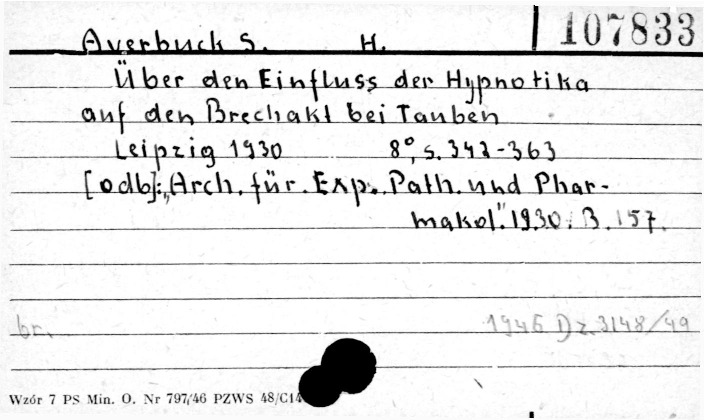 107833
Averbuck S. H.
Über den Einfluss der Hypnotika
auf den Brechakt bei Tauben
Leipzig 1930 8°, s. 342-363
[odb]: „Arch. für. Exp. Path. und Phar-
makol." 1930. B. 157.
br. 1946 Dz. 3148/49
Wzór 7 PS Min. O. Nr 797/46 PZWS 48/C14